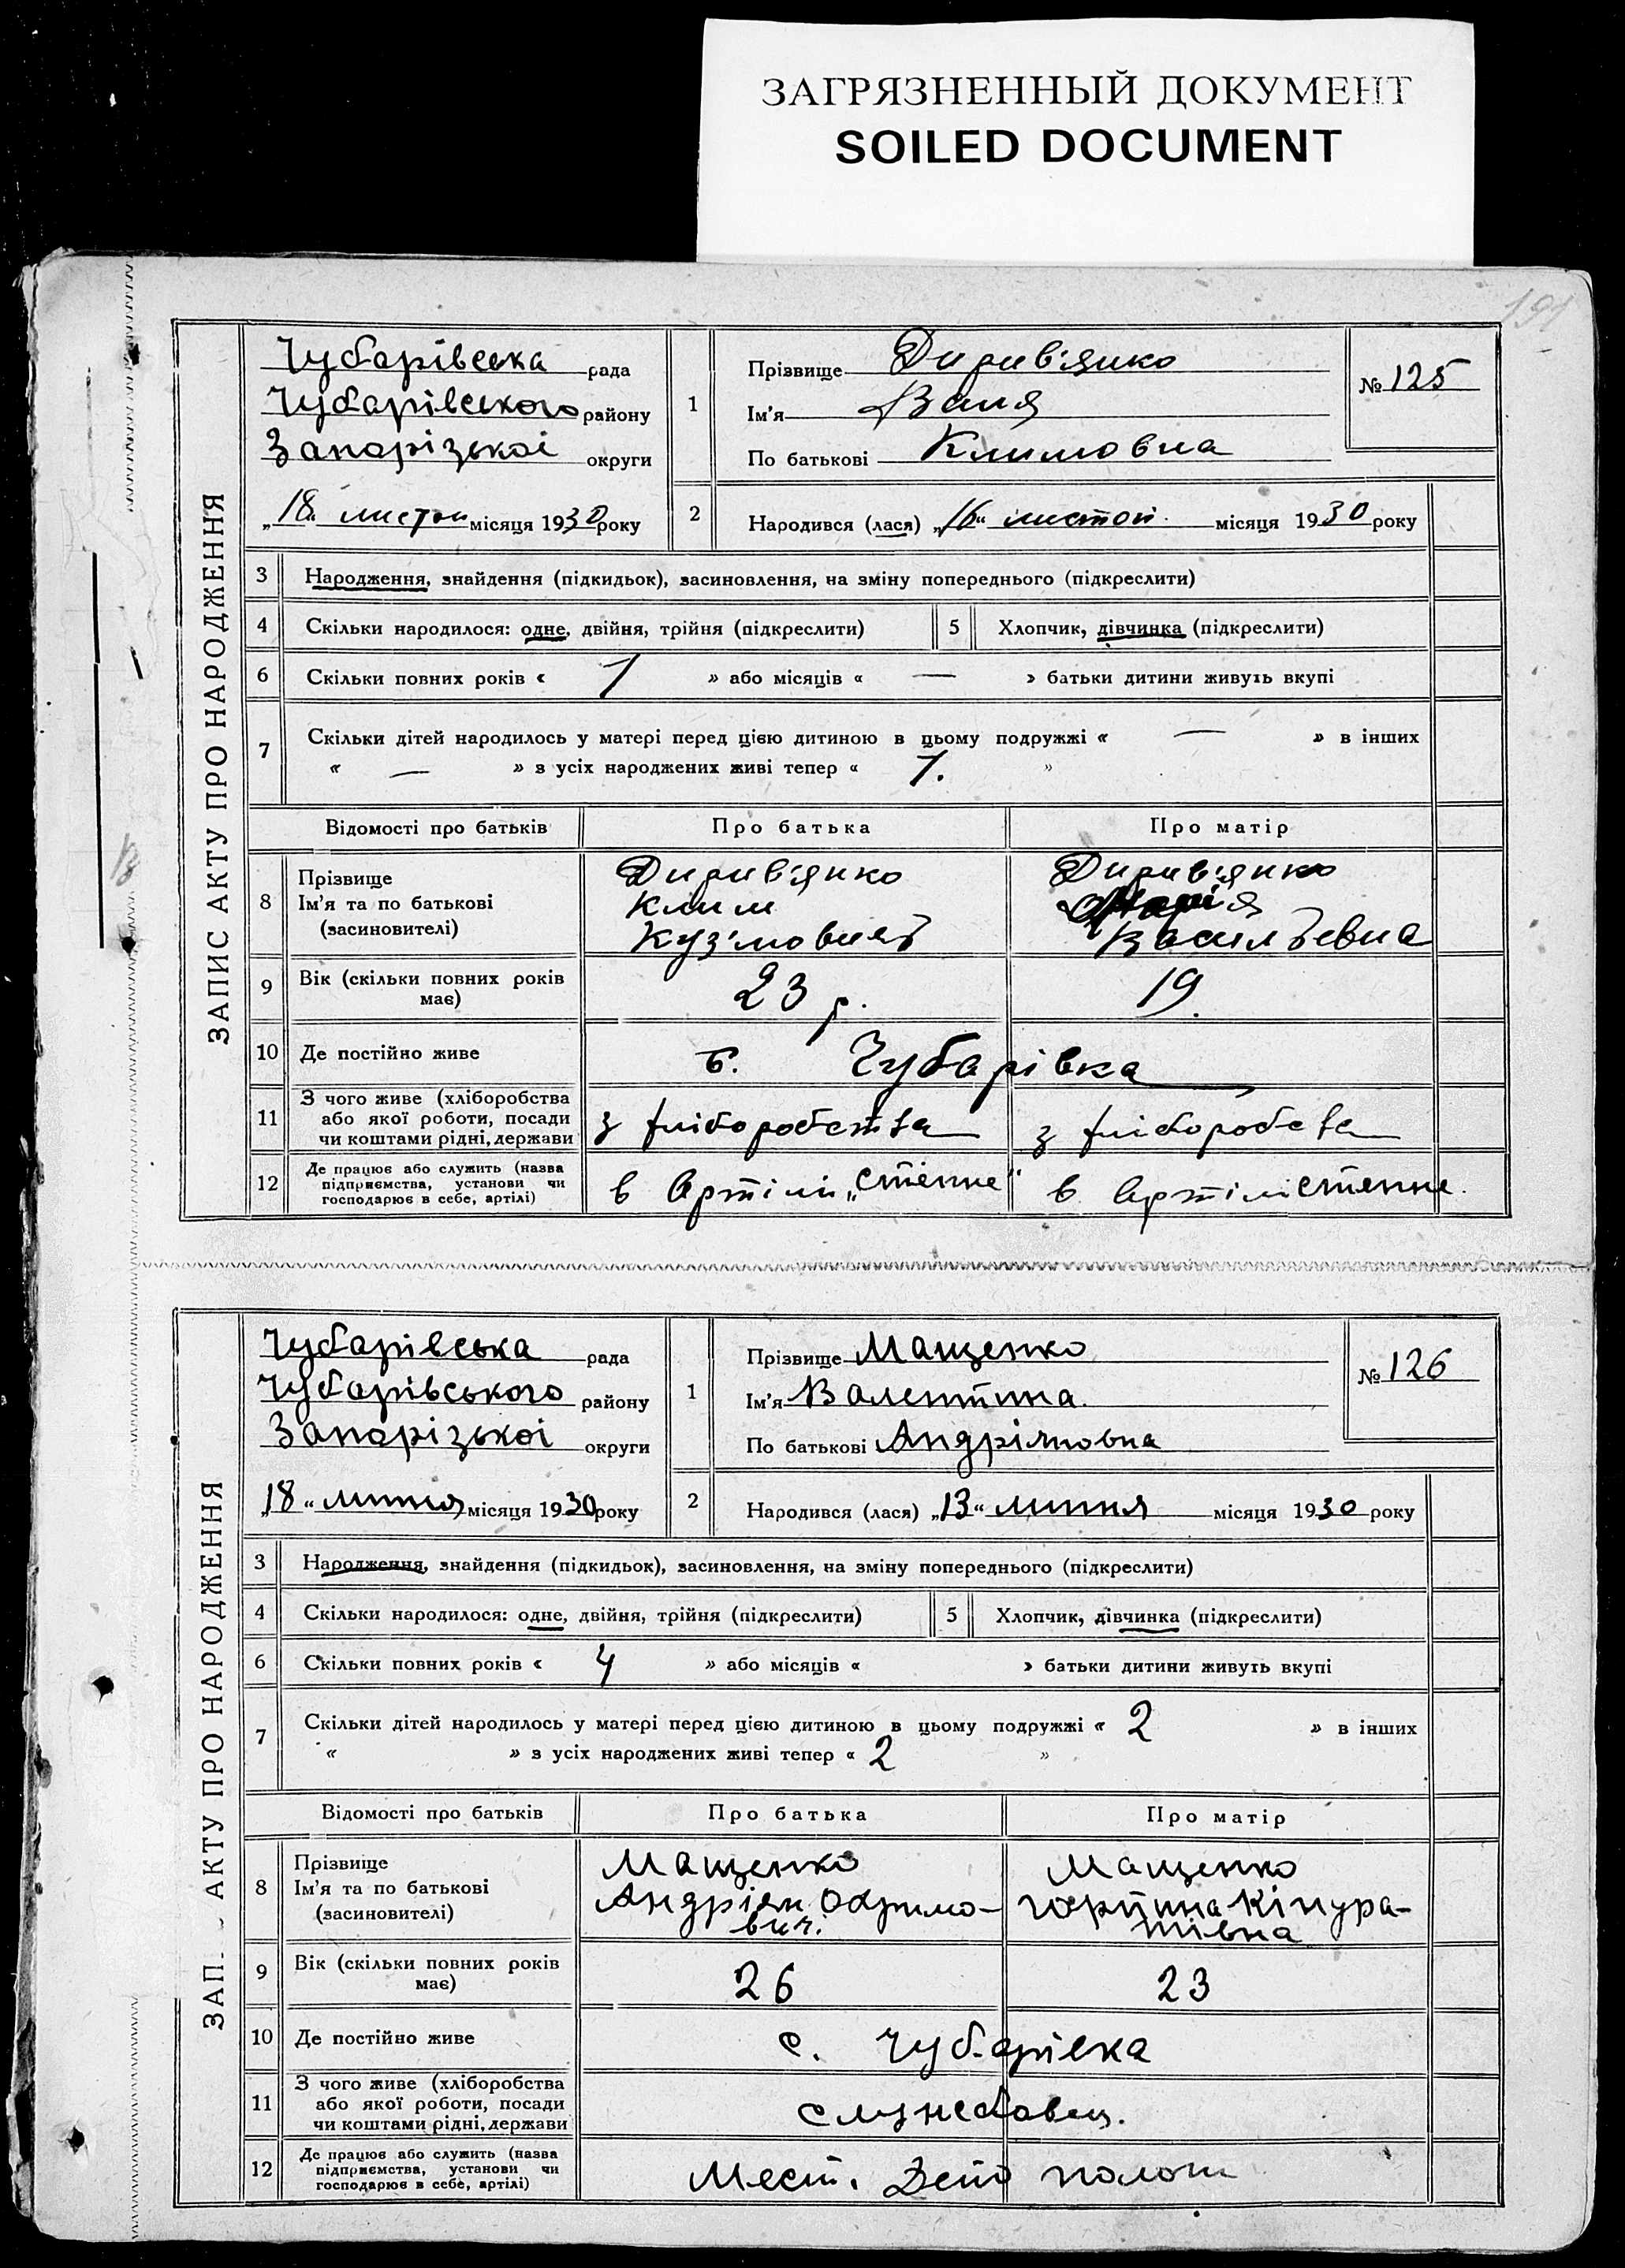 ЗАГРЯЗНЕННЫЙ ДОКУМЕНТ
SOILED DOCUMENT
191
ЗАПИС АКТУ ПРО НАРОДЖЕННЯ
Чубарівська рада
Чубарівського району
Запорізької округи
„18“ листоп місяця 1930 року
1 Прізвище Дирив'янко
Ім'я Валя
По батькові Климовна
№ 125
2 Народився (лася) „16“ листоп. місяця 1930 року
3 Народження, знайдення (підкидьок), засиновлення, на зміну попереднього (підкреслити)
4 Скільки народилося: одне, двійня, трійня (підкреслити) 5 Хлопчик, дівчинка (підкреслити)
6 Скільки повних років « 1 » або місяців « — » батьки дитини живуть вкупі
7 Скільки дітей народилось у матері перед цією дитиною в цьому подружжі « — » в інших
« — » з усіх народжених живі тепер « 1. »
Відомості про батьків Про батька Про матір
8 Прізвище
Ім'я та по батькові
(засиновителі)
Дирив'янко
Клим
Кузьмович
Дирив'янко
Марія
Васильевна
9 Вік (скільки повних років
має)
23 р. 19
10 Де постійно живе с. Чубарівка
11 З чого живе (хліборобства
або якої роботи, посади
чи коштами рідні, держави
з хліборобства з хліборобства
12 Де працює або служить (назва
підприємства, установи чи
господарює в себе, артілі)
в Артіли „Степне“ в Артіли степне.
ЗАП. АКТУ ПРО НАРОДЖЕННЯ
Чубарівська рада
Чубарівського району
Запорізькоі округи
„18“ липня місяця 1930 року
1 Прізвище Мащенко
Ім'я Валентина
По батькові Андріяновна
№ 126
2 Народився (лася) „13“ липня місяця 1930 року
3 Народження, знайдення (підкидьок), засиновлення, на зміну попереднього (підкреслити)
4 Скільки народилося: одне, двійня, трійня (підкреслити) 5 Хлопчик, дівчинка (підкреслити)
6 Скільки повних років « 4 » або місяців « » батьки дитини живуть вкупі
7 Скільки дітей народилось у матері перед цією дитиною в цьому подружжі « 2 » в інших
« » з усіх народжених живі тепер « 2 »
Відомості про батьків Про батька Про матір
8 Прізвище
Ім'я та по батькові
(засиновителі)
Мащенко
Андріян Охримо-
вич.
Мащенко
горпина Кіндра-
тівна
9 Вік (скільки повних років
має)
26 23
10 Де постійно живе с. Чубарівка
11 З чого живе (хліборобства
або якої роботи, посади
чи коштами рідні, держави
службовец.
12 Де працює або служить (назва
підприємства, установи чи
господарює в себе, артілі)
Мест. Депо пологи